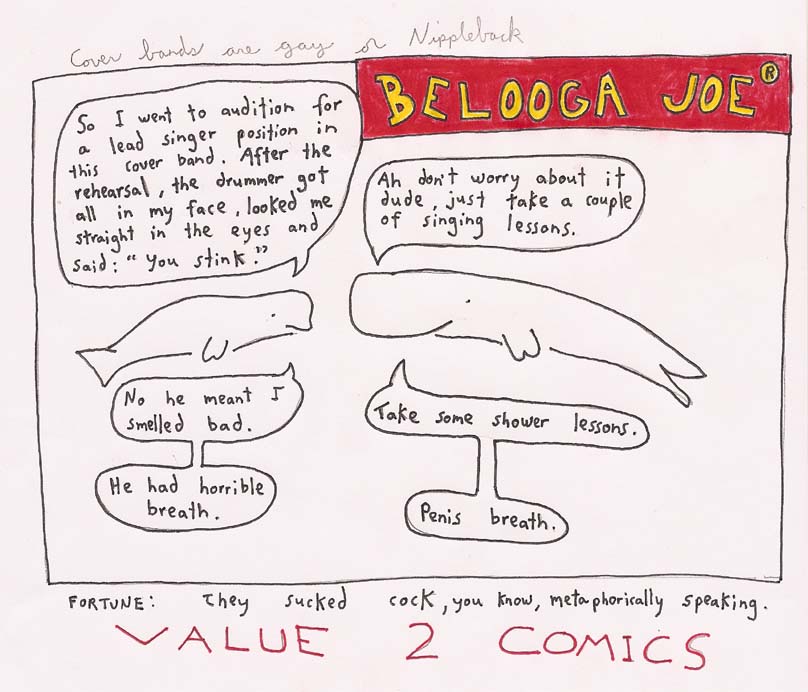 Cover bands are gay or Nippleback
BELOOGA JOE®
So I went to audition for
a lead singer position in
this cover band. After the
rehearsal, the drummer got
all in my face, looked me
straight in the eyes and
said: "You stink."
Ah don't worry about it
dude, just take a couple
of singing lessons.
No he meant I
smelled bad.
He had horrible
breath.
Take some shower lessons.
Penis breath.
FORTUNE: They sucked cock, you know, metaphorically speaking.
VALUE 2 COMICS